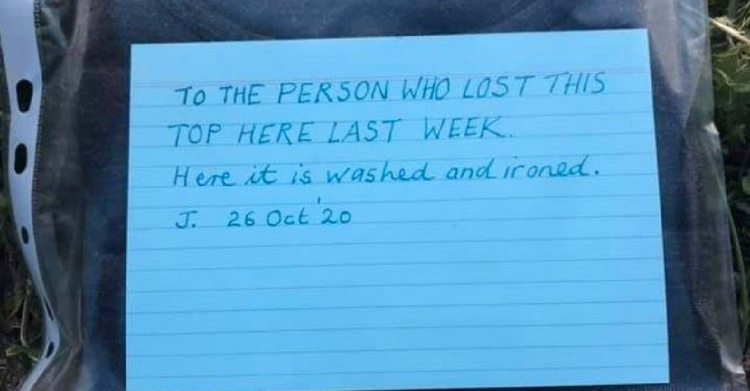 TO THE PERSON WHO LOST THIS
TOP HERE LAST WEEK.
Here it is washed and ironed.
J. 26 Oct '20